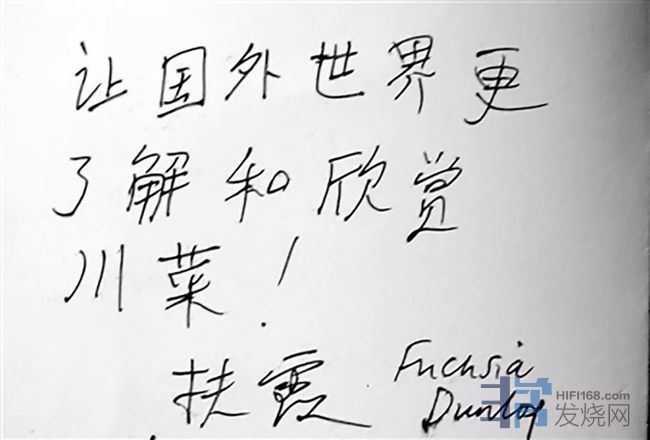 让国外世界更
了解和欣赏
川菜！
扶霞 Fuchsia
Dunlop
HIFI168.com
发烧网